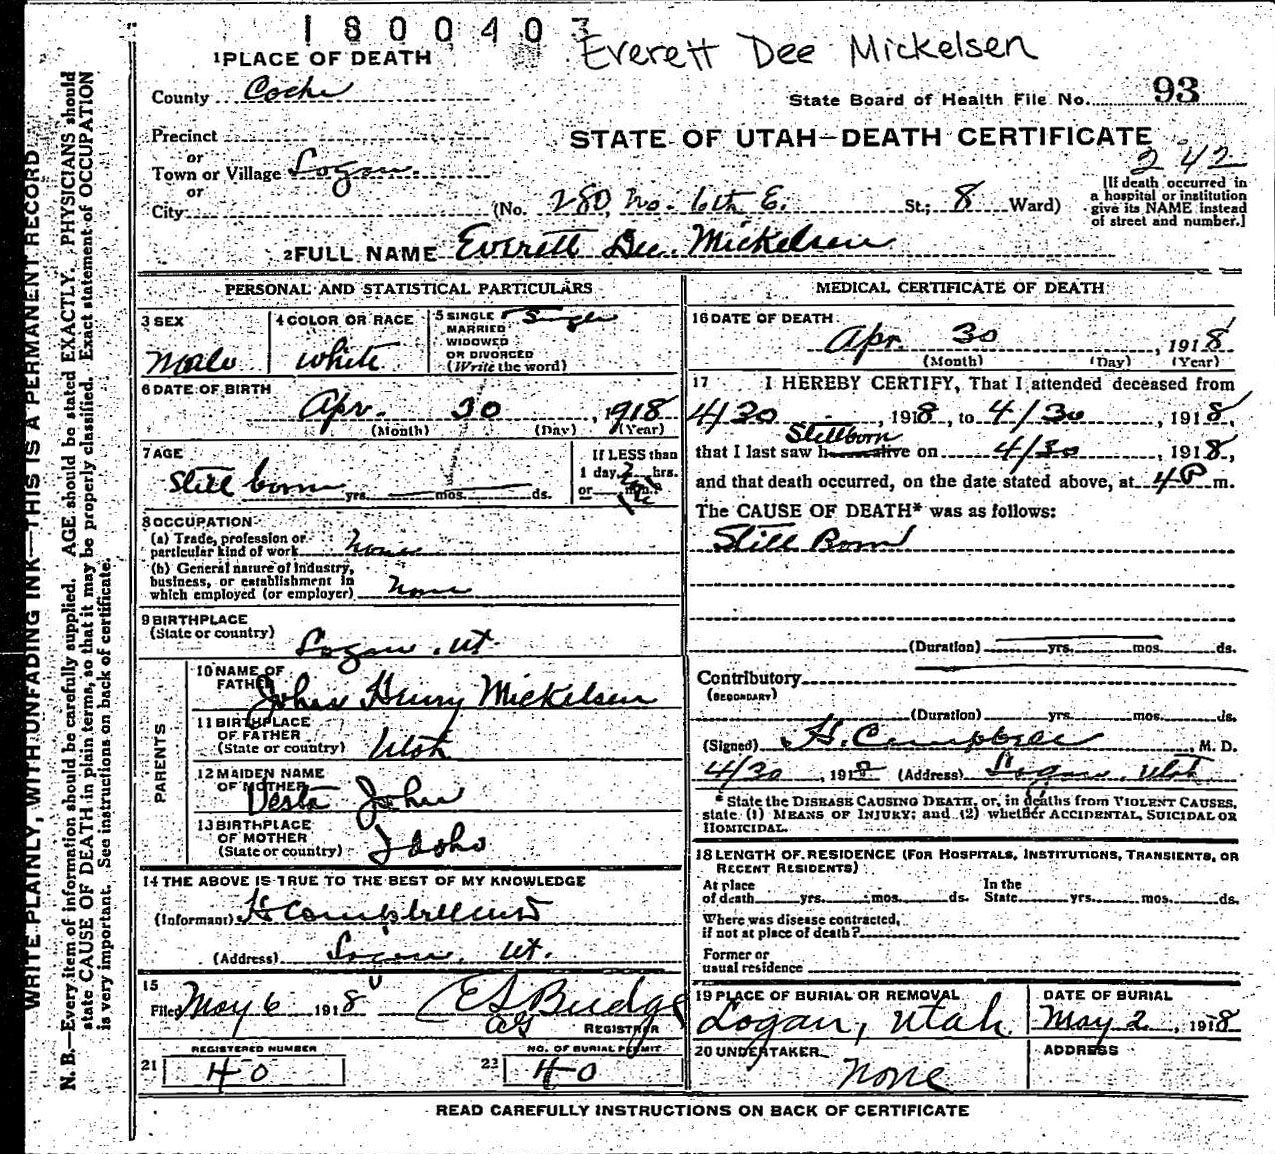 1800403
Everett Dee Mickelsen
1 PLACE OF DEATH
County Cache
State Board of Health File No. 93
Precinct
STATE OF UTAH—DEATH CERTIFICATE
242
or
Town or Village Logan.
or
City (No. 280, No. 6th E. St.; 8 Ward)
[If death occurred in
a hospital or institution
give its NAME instead
of street and number.]
2 FULL NAME Everett Dee Mickelsen
PERSONAL AND STATISTICAL PARTICULARS
3 SEX Male
4 COLOR OR RACE White
5 SINGLE Single
MARRIED
WIDOWED
OR DIVORCED
(Write the word)
6 DATE OF BIRTH
Apr. 30, 1918
(Month) (Day) (Year)
7 AGE
Still born yrs. mos. ds.
If LESS than
1 day, hrs.
or min.?
8 OCCUPATION
(a) Trade, profession or
particular kind of work none
(b) General nature of Industry,
business, or establishment in
which employed (or employer) none
9 BIRTHPLACE
(State or country) Logan, Ut.
PARENTS
10 NAME OF
FATHER John Henry Mickelsen
11 BIRTHPLACE
OF FATHER
(State or country) Utah
12 MAIDEN NAME
OF MOTHER Vesta John
13 BIRTHPLACE
OF MOTHER
(State or country) Idaho
14 THE ABOVE IS TRUE TO THE BEST OF MY KNOWLEDGE
(Informant) H Campbell MD
(Address) Logan, Ut.
15
Filed May 6 1918 E S Budge
REGISTRAR
REGISTERED NUMBER
21 40
NO. OF BURIAL PERMIT
22 40
MEDICAL CERTIFICATE OF DEATH
16 DATE OF DEATH
Apr. 30, 1918
(Month) (Day) (Year)
17 I HEREBY CERTIFY, That I attended deceased from
4/30, 1918, to 4/30, 1918,
Stillborn
that I last saw h alive on 4/30, 1918,
and that death occurred, on the date stated above, at 4 P m.
The CAUSE OF DEATH* was as follows:
Still Born
(Duration) yrs. mos. ds.
Contributory
(SECONDARY)
(Duration) yrs. mos. ds.
(Signed) H. Campbell, M. D.
4/30, 1918 (Address) Logan, Utah
* State the DISEASE CAUSING DEATH, or, in deaths from VIOLENT CAUSES,
state (1) MEANS OF INJURY; and (2) whether ACCIDENTAL, SUICIDAL OR
HOMICIDAL.
18 LENGTH OF RESIDENCE (FOR HOSPITALS, INSTITUTIONS, TRANSIENTS, OR
RECENT RESIDENTS)
At place In the
of death yrs. mos. ds. State yrs. mos. ds.
Where was disease contracted,
if not at place of death?
Former or
usual residence
19 PLACE OF BURIAL OR REMOVAL
Logan, Utah.
DATE OF BURIAL
May 2, 1918
20 UNDERTAKER
None
ADDRESS
READ CAREFULLY INSTRUCTIONS ON BACK OF CERTIFICATE
WRITE PLAINLY, WITH UNFADING INK—THIS IS A PERMANENT RECORD
N. B.—Every item of information should be carefully supplied. AGE should be stated EXACTLY. PHYSICIANS should
state CAUSE OF DEATH in plain terms, so that it may be properly classified. Exact statement of OCCUPATION
is very important. See instructions on back of certificate.